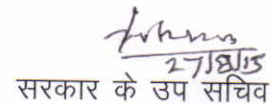 27/8/15
सरकार के उप सचिव